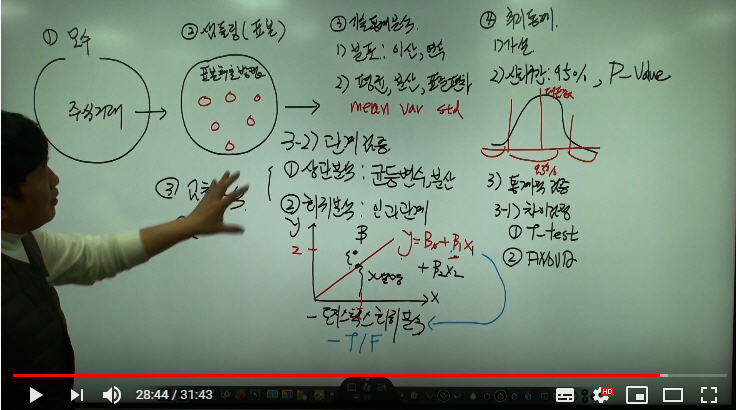 ① 모수
주식거래
② 샘플링(표본)
표본추출방법
③ 기술통계분석
1) 분포: 이산, 연속
2) 평균, 분산, 표준편차
mean var std
3-2) 관계검증
① 상관분석: 공동변수, 분산
② 회귀분석: 인과관계
y
2
B
y = B₀ + B₁x₁
+ B₂x₂
x
- 로지스틱스회귀분석
- T/F
③
④ 추리통계
1) 가설
2) 신뢰구간: 95%, P-Value
95%
3) 통계적 검증
3-1) 차이검정
① T-test
② ANOVA
28:44 / 31:43
HD